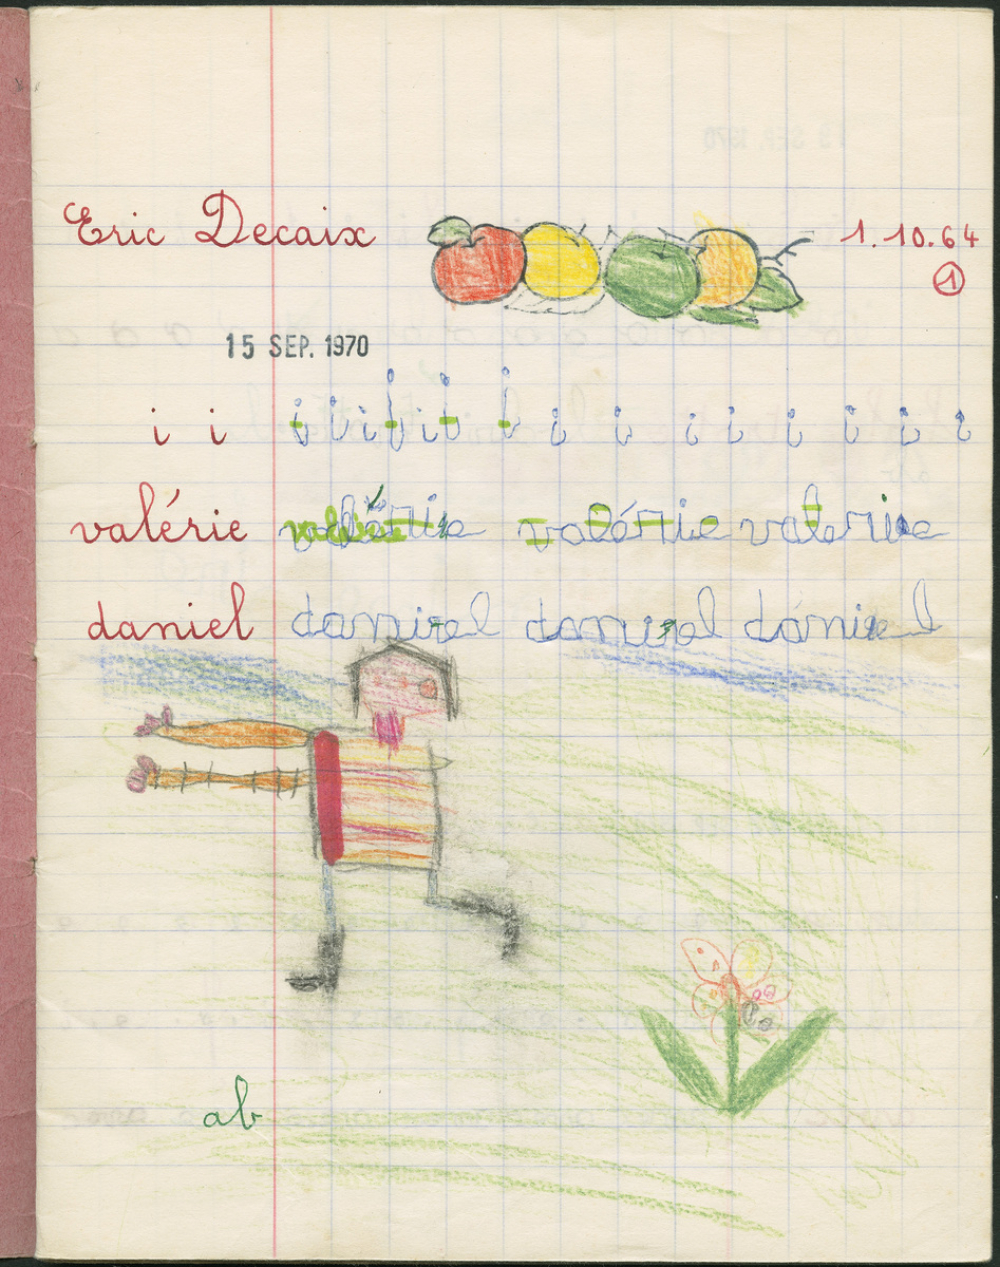 Eric Decaix 1.10.64
1
15 SEP. 1970
i i i i i i i i i i i i i i i i i i
valérie valérie valérie valerie
daniel daniel daniel daniel
ab